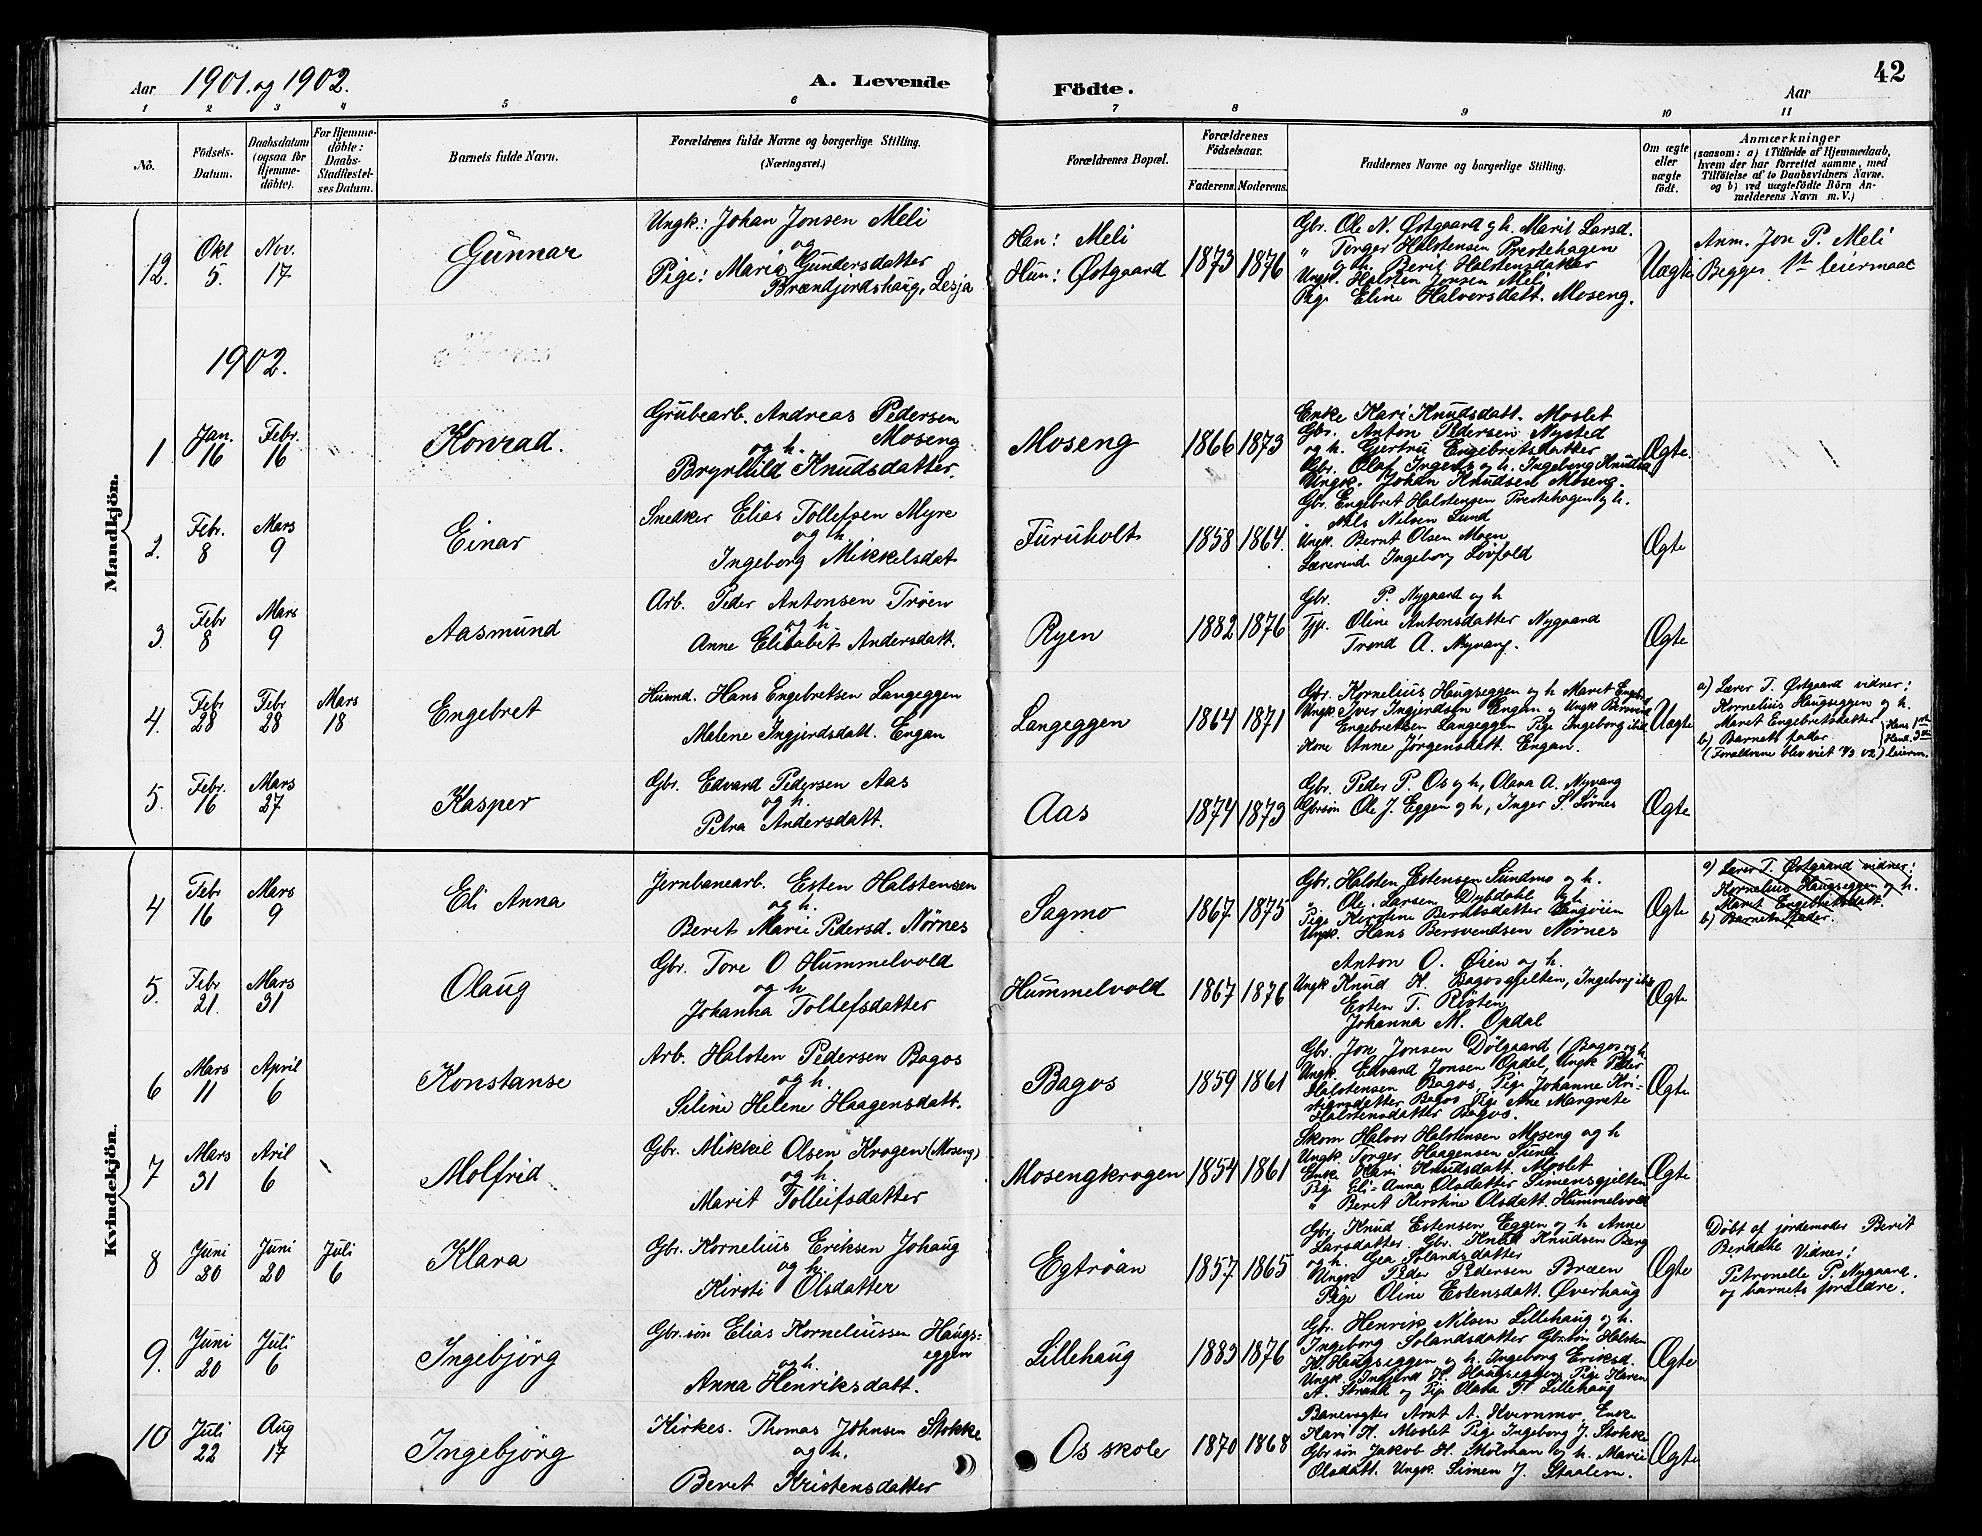 Aar 1901. og 1902. A. Levende Födte. Aar 42
1 2 3 4 5 6 7 8 9 10 11
No.
Födsels-Datum.
Daabsdatum (ogsaa for Hjemme-döbte).
For Hjemme-döbte: Daabs-Stadfæstel-ses Datum.
Barnets fulde Navn.
Forældrenes fulde Navne og borgerlige Stilling. (Næringsvei.)
Forældrenes Bopæl.
Forældrenes Födselsaar.
Faderens. Moderens.
Faddernes Navne og borgerlige Stilling.
Om ægte eller uægte født.
Anmærkninger
(saasom: a) i Tilfælde af Hjemmedaab, hvem der har forrettet samme, med Tilföielse af to Daabsvidners Navne. og b) ved uægtefödte Börn An-melderens Navn m. V.)
Mandkjön.
12. Okt 5. Nov. 17 Gunnar
Ungk: Johan Jonsen Meli
og
Pige: Maria Gundersdatter
Brændjordshaug, Lesja
Han: Meli
Hun: Østgaard
1873 1876
Gbr. Ole N. Østgaard og h. Marit Larsd.
" Torger Halstensen Prestehagen
og h. Berit Halstensdatter
Ungk. Halsten Jonsen Meli
Pige Eline Halvorsdatt. Moseng.
Uægte
Anm. Jon P. Meli
Begges 1ste leiermaal
1902.
1 Jan. 16 Febr. 16 Konrad.
Grubearb. Andreas Pedersen
Moseng
og h.
Brynhild Knudsdatter.
Moseng 1866 1873
Enke Kari Knudsdatt. Moslet
Gbr. Anton Pedersen Nysted
og h. Gjertru Engebretsdatter
Gbr. Olaf Ingeds og h. Ingeborg Knudsd
Ungk. Johan Knudsen Moseng.
Ægte.
2. Febr. 8 Mars 9 Einar
Snedker Elias Tollefsen Myre
og h.
Ingeborg Mikkelsdat
Furuholt 1858 1864.
Gbr. Engebret Halstensen Prestehagen og h.
" Nils Nilsen Lund
Ungk. Bernt Olsen Moen
Lærerinde Ingeborg Løvfold
Ægte
3. Febr 8 Mars 9 Aasmund
Arb. Peder Antonsen Trøen
og h
Anne Elisabet Andersdatt.
Ryen 1882 1876
Gbr. P. Nygaard og h
Tjp. Oline Antonsdatter Nygaard
Trond A. Nyvang.
Ægte
4. Febr 28 Febr 28 Mars 18 Engebret
Husmd. Hans Engebretsen Langeggen
Malene Ingjerdsdatt. Engan
Langeggen 1864 1871
Gbr. Kornelius Haugseggen og h Maret Engebr
Ungk. Iver Ingjerdsen Engan og Ungk Bersvend
Engebretsen Langeggen Pige Ingeborg ibid
Kone Anne Jørgensdatt. Engan.
Uægte
a) Lærer T. Østgaard vidner:
Kornelius Haugseggen og h.
Maret Engebretsdatter
b) Barnets fader
(Forældrene blev viet 18/3 02) leierm.
5. Febr. 16 Mars 27 Kasper
Gbr. Edvard Pedersen Aas
og h.
Petra Andersdatt.
Aas 1874 1873
Gbr. Peder P. Os og h, Olava A. Nyvang
Gbrsøn Ole J. Eggen og h, Inger S. Løvnes
Ægte
Kvindekjön.
4 Febr 16 Mars 9 Eli Anna
Jernbanearb. Esten Halstensen
og h.
Beret Marie Pedersd. Nörnes
Sagmo 1867 1875
Gbr. Halsten Estensen Sundmo og h.
" Ole Larsen Dybdahl h h
Pige Kirstine Berntsdatter Engøien
Ungk. Hans Bersvendsen Nørnes
Ægte
a) Lærer T. Østgaard vidner:
Kornelius Haugseggen og h.
Maret Engebretsdatt.
b) Barnets fader.
5. Febr 21. Mars 31 Olaug
Gbr. Tore O Hummelvold
og h
Johanna Tollefsdatter
Hummelvold 1867 1876
Anton O. Øien og h.
Ungk Knud H. Bagosgjelten, Ingeborg ibid
Esten T. Røsten
Johanna M. Opdal
Ægte
6 Mars 11 April 6 Konstanse
Arb. Halsten Pedersen Bagos
og h.
Seline Helene Haagensdatt.
Bagos 1859 1861
Gbr. Jon Jonsen Dölgaard (Bagos og h
Ungk. Edvard Jonsen Opdal, Ungk Peder
Halstensen Bagos, Pige Johanne Kri-
stiansdatter Bagos Pige Ane Margrete
Halstensdatter Bagos.
Ægte
7 Mars 31 Avril 6 Molfrid
Gbr. Mikkel Olsen Krogen (Moseng)
og h.
Marit Tolleifsdatter
Mosengkrogen 1854 1861
Skom Halvor Halstensen Moseng og h
Ungk. Torger Haagensen Sund
Enke Kari Knudsdatt. Moslet
Pig. Eli-Anna Olsdatter Simensgjelten
" Beret Kirstine Olsdatt. Hummelvold
Ægte
8 Juni 20 Juni 20 Juli 6 Klara
Gbr. Kornelius Eriksen Johaug
og h.
Kirsti Olsdatter
Egtröan 1857 1865
Gbr. Knud Estensen Eggen og h Anne
Larsdatter. Gbr. Knud Knudsen Berg
og h. Gea Solandsdatter
Ungk Peder Pedersen Bræen
Pige Oline Estensdatt. Øverhaug
Ægte
Døbt af jordemoder Berit
Berdahl Vidner:
Petronelle P. Nygaard.
og barnets forældre.
9. Juni 20 Juli 6 Ingebjörg
Gbr.søn Elias Korneliussen Haugs-
eggen
og h.
Anna Henriksdatt.
Lillehaug 1883 1876
Gbr. Henrik Nilsen Lillehaug og h.
Ingeborg Solandsdatter Gbr.søn Halsten
K. Haugseggen og h. Ingeborg Eriksd.
Ungk Ingjerd K. Haugseggen, Pige Karen
A. Strand og Pige Olava H Lillehaug
Ægte
10 Juli 22 Aug 17 Ingebjörg
Kirkes. Thomas Johnsen Stokke
og h.
Beret Kristensdatter
Os skole 1870 1868
Banevogter Arnt A. Kvernmo, Enke
Kari H. Moslet Pige Ingeborg J. Stokke
Gbr søn Jakob H. Mölman og h. Marie
Olsdatt. Ungk. Simen J. Staalem.
Ægte